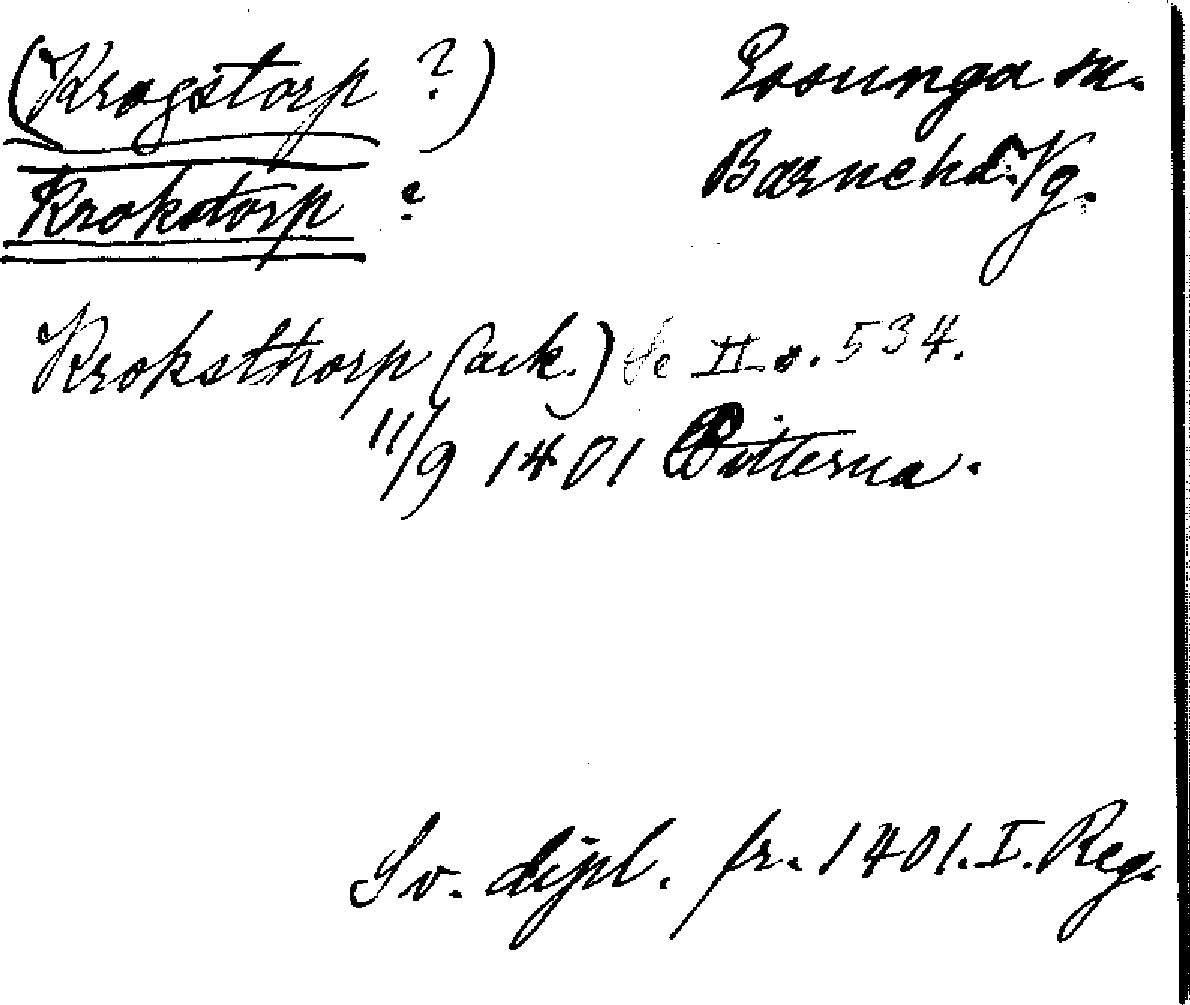 (Krogstorp ?)
Essunga sn.
Krokstorp ?
Barne hd. Vg.
Kroksthorp (ack.) Se II s. 534.
11/9 1401 Bitterna.
Sv. dipl. fr. 1401. I. Reg.